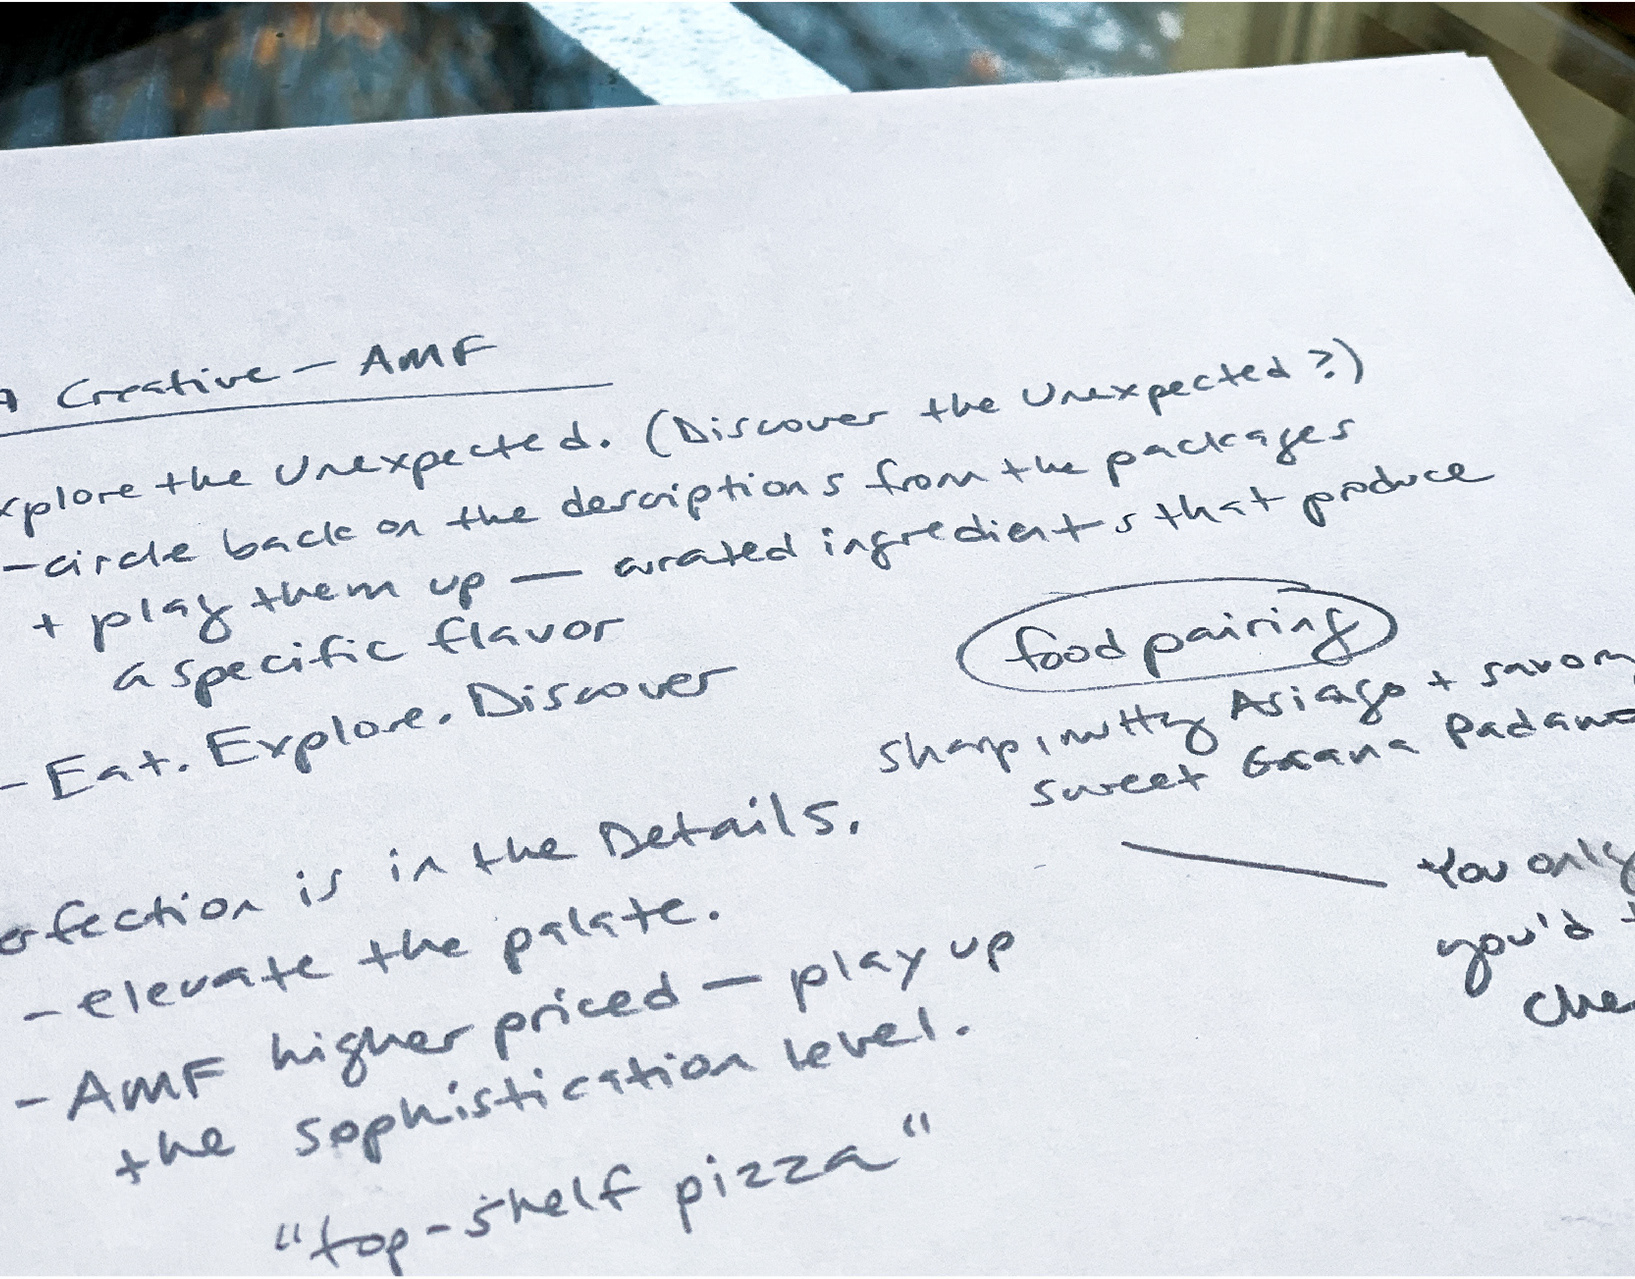 A Creative — AMF
xplore the Unexpected. (Discover the Unexpected?)
- circle back on the descriptions from the packages
+ play them up — curated ingredients that produce
a specific flavor
- Eat. Explore. Discover
food pairing
sharp, nutty Asiago + savory,
sweet Grana Padano
— You only
you'd t
che
erfection is in the Details.
- elevate the palate.
- AMF higher priced — play up
the sophistication level.
"top-shelf pizza"